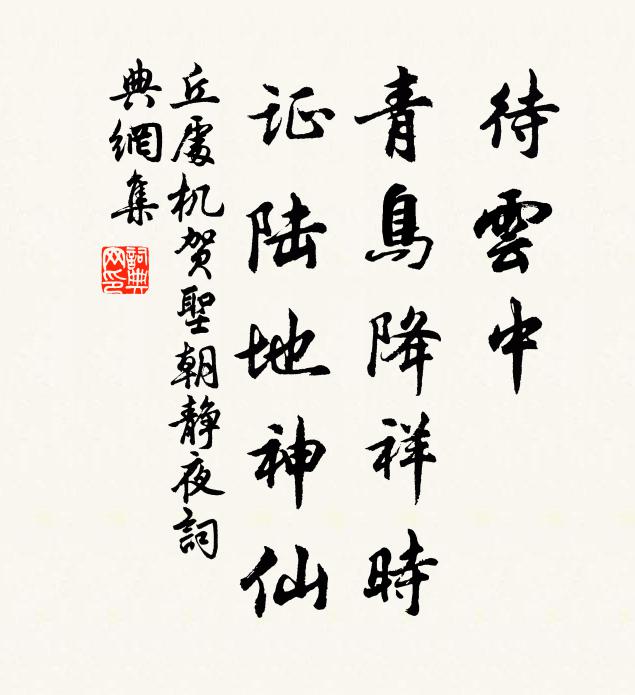 待雲中
青鳥降祥時
证陆地神仙
丘處机贺聖朝静夜詞
典網集
詞典網印